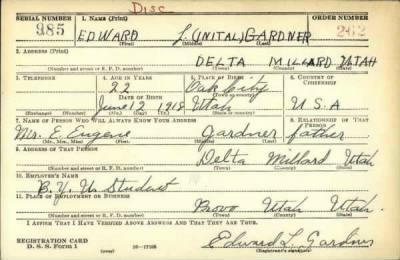 Disc
SERIAL NUMBER 1. NAME (Print) ORDER NUMBER
985 EDWARD L.(INITAL) GARDNER
(First) (Middle) (Last)
2. ADDRESS (Print)
DELTA MILLARD UTAH
(Number and street or R. F. D. number) (Town) (County) (State)
3. TELEPHONE 4. AGE IN YEARS 5. PLACE OF BIRTH 6. COUNTRY OF CITIZENSHIP
22 Oak City
DATE OF BIRTH
June 12 1918 Utah U.S.A
(Exchange) (Number) (Mo.) (Day) (Yr.) (State or country)
7. NAME OF PERSON WHO WILL ALWAYS KNOW YOUR ADDRESS 8. RELATIONSHIP OF THAT PERSON
Mr. E. Eugene Gardner father
(Mr., Mrs., Miss) (First) (Middle) (Last)
9. ADDRESS OF THAT PERSON
Delta Millard Utah
(Number and street or R. F. D. number) (Town) (County) (State)
10. EMPLOYER'S NAME
B.Y.U. Student
11. PLACE OF EMPLOYMENT OR BUSINESS
Provo Utah Utah
(Number and street or R. F. D. number) (Town) (County) (State)
I AFFIRM THAT I HAVE VERIFIED ABOVE ANSWERS AND THAT THEY ARE TRUE.
REGISTRATION CARD
D. S. S. FORM 1 Edward L. Gardner
(Registrant's signature)